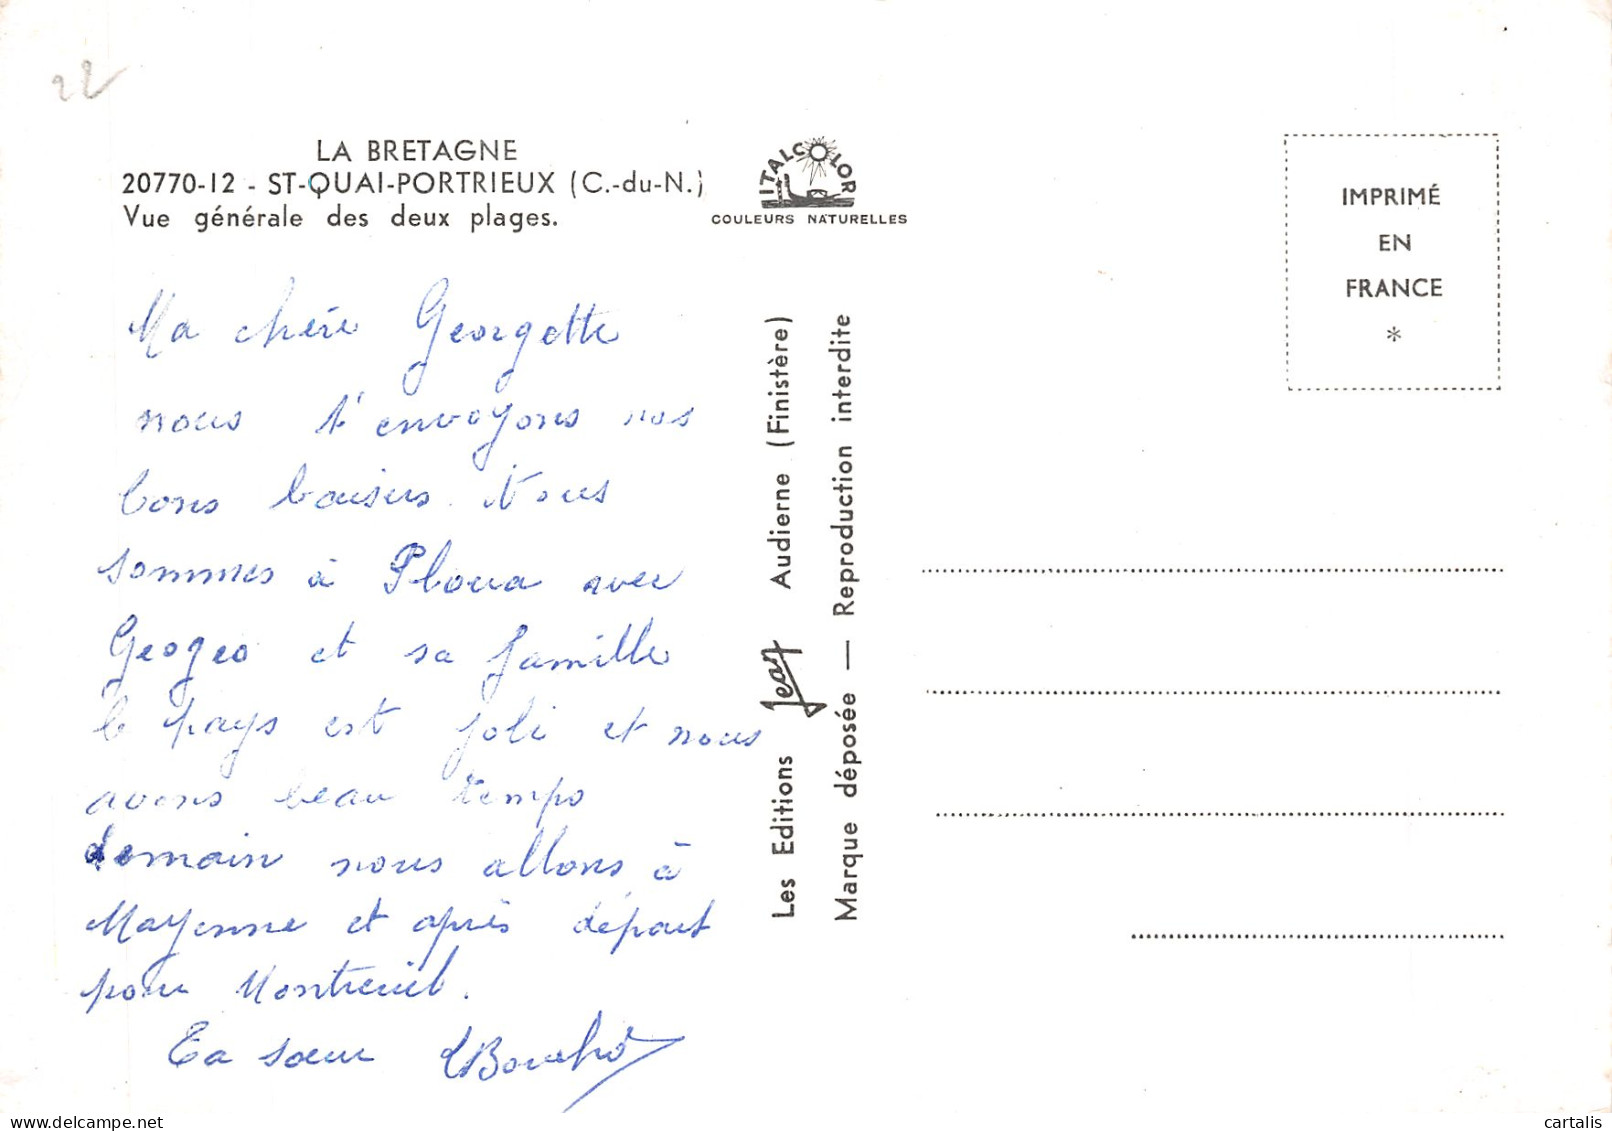 22
LA BRETAGNE
20770-12 - ST-QUAI-PORTRIEUX (C.-du-N.)
Vue générale des deux plages.
ITALCOLOR
COULEURS NATURELLES
IMPRIMÉ
EN
FRANCE
*
Ma chère Georgette
nous t'envoyons nos
bons baisers. Nous
sommes à Ploua avec
Geogeo et sa famille
le pays est joli et nous
avons beau temps
demain nous allons à
Mayenne et après départ
pour Montreuil.
Ta sœur
Les Editions Jean Audierne (Finistère)
Marque déposée — Reproduction interdite
cartalis